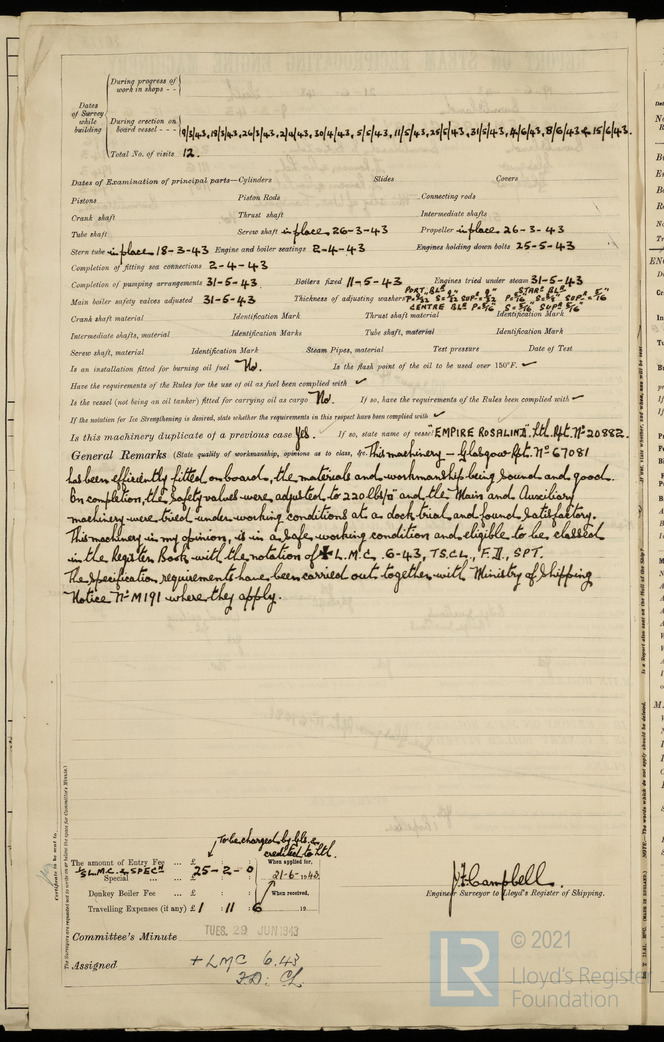 During progress of work in shops - -
Dates of Survey while building
During erection on board vessel - - - 9/3/43, 18/3/43, 26/3/43, 2/4/43, 30/4/43, 5/5/43, 11/5/43, 25/5/43, 31/5/43, 4/6/43, 8/6/43 & 15/6/43.
Total No. of visits 12.
Dates of Examination of principal parts—Cylinders Slides Covers
Pistons Piston Rods Connecting rods
Crank shaft Thrust shaft Intermediate shafts
Tube shaft Screw shaft in place 26-3-43 Propeller in place 26-3-43
Stern tube in place 18-3-43 Engine and boiler seatings 2-4-43 Engines holding down bolts 25-5-43
Completion of fitting sea connections 2-4-43
Completion of pumping arrangements 31-5-43. Boilers fixed 11-5-43 Engines tried under steam 31-5-43
Main boiler safety valves adjusted 31-5-43 Thickness of adjusting washers
Crank shaft material Identification Mark Thrust shaft material Identification Mark
Intermediate shafts, material Identification Marks Tube shaft, material Identification Mark
Screw shaft, material Identification Mark Steam Pipes, material Test pressure Date of Test
Is an installation fitted for burning oil fuel No. Is the flash point of the oil to be used over 150°F. ✓
Have the requirements of the Rules for the use of oil as fuel been complied with ✓
Is the vessel (not being an oil tanker) fitted for carrying oil as cargo No. If so, have the requirements of the Rules been complied with ✓
If the notation for Ice Strengthening is desired, state whether the requirements in this respect have been complied with ✓
Is this machinery duplicate of a previous case Yes. If so, state name of vessel "EMPIRE ROSALIND". Lth. Rpt. No 20882.
General Remarks (State quality of workmanship, opinions as to class, &c. This machinery – Glasgow Rpt. No 67081
has been efficiently fitted on board, the materials and workmanship being sound and good.
On completion, the Safety valves were adjusted to 220 lbs/□" and the Main and Auxiliary
machinery were tried under working conditions at a dock trial and found Satisfactory.
This machinery in my opinion, is in a safe working condition and eligible to be classed
in the Register Book with the notation of ✠ L.M.C. 6-43, T.S.CL., F.D., SPT.
The Specification requirements have been carried out together with Ministry of Shipping
Notice No M191 where they apply.
To be charged by Gls. &
credited to Lth.
The amount of Entry Fee ... £ : : When applied for,
Special ... ... £ 25-2-0 21-6-1943.
Donkey Boiler Fee ... £ : : When received,
Travelling Expenses (if any) £ 1 : 11 : 6 19
J. F. Campbell.
Engineer Surveyor to Lloyd's Register of Shipping.
Committee's Minute TUES. 29 JUN 1943
Assigned + LMC 6.43
F.D: CL
© 2021
LR Lloyd's Register
Foundation